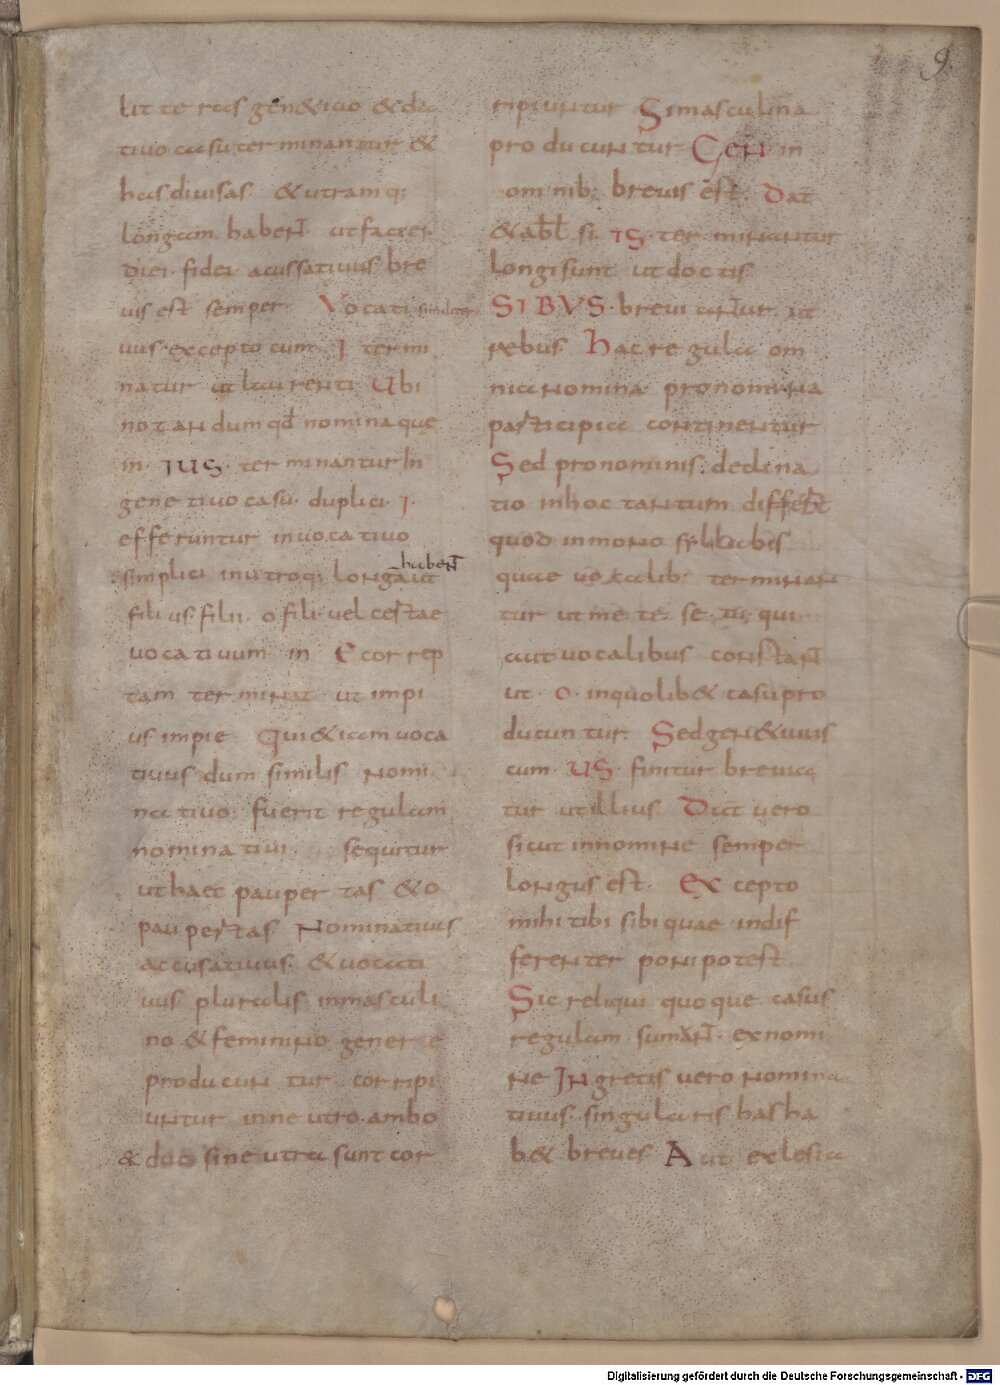 9.
litteras gen&iuo & da
tiuo casu terminantur &
has diuisas & utramq;
longam habeN̄ ut faciei.
diei. fidei acussatiuus bre
uis est semper. Vocati similiter
uus excepto cum. I termi
natur ut laurenti Ubi
notandum qd̄ nomina que
in. IUS. terminantur In
genetiuo casu. duplici. I.
efferuntur in uocatiuo
simplici in utroq; longa ut
habeN̄
filius. filii. o fili. uel certae
uocatiuum in E correp
tam terminat ut impi
us impie Qui & iam uoca
tiuus dum similis nomi
natiuo fuerit regulam
nominatiui sequitur
ut haec paupertas & o
paupertas Nominatiuus
accusatiuus. & uocati
uus pluralis in masculi
no & feminino genere
producuntur corripi
untur in neutro. ambo
& duo sine utra sunt cor
ripiuntur Si masculina
producuntur GeN in
omnib; breuis est. Dat̄
& abl̄ si IS. terminantur
longi sunt ut doctis
SIBUS. breuiaNtur ut
rebus Hac regula om
nia nomina. pronomina
participia continentur
Sed pronominis. declina
tio in hoc tantum differt
quod in mono syllabis
quae uocalib; terminan
tur ut me. te. se. tu; qui
aut uocalibus constaN̄
ut. o. in quolib& casu pro
ducuntur. Sed gen&iuus
cum US. finitur breuia
tur ut illius Dat̄ uero
sicut in nomine semper
longus est. EXcepto
mihi tibi sibi quae indif
ferenter poni potest
Sic reliqui quoque casus
regulam sumaN̄. ex nomi
ne IN grecis uero nomina
tiuus. singularis has ha
b& breues Aut exlesia
Digitalisierung gefördert durch die Deutsche Forschungsgemeinschaft - DFG